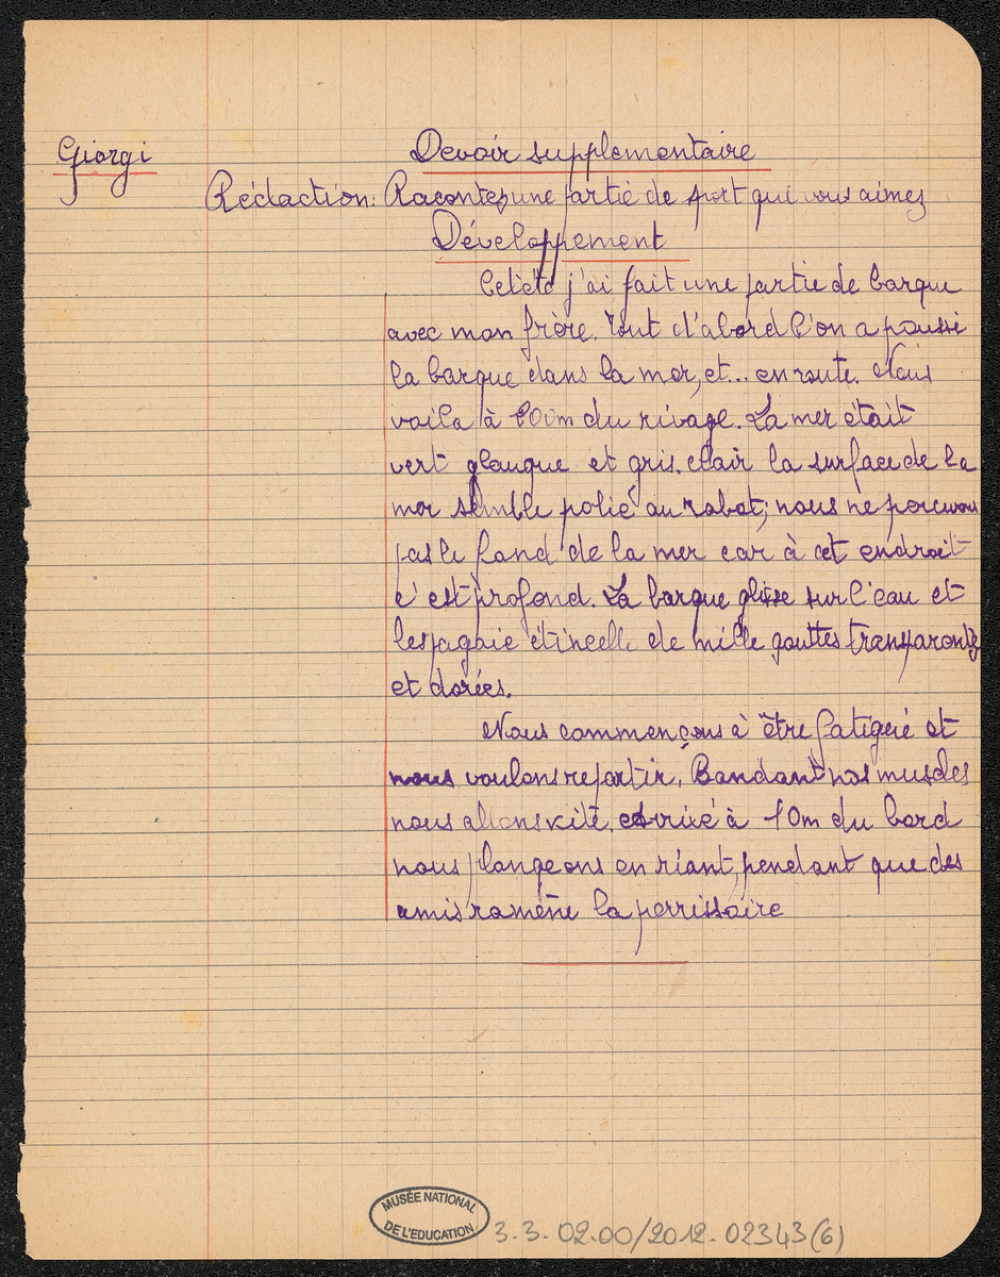 Giorgi
Devoir supplementaire
Rédaction: Racontez une partie de sport qui vous aimez
Développement
Cet été j'ai fait une partie de barque
avec mon frère. Tout d'abord l'on a poussé
la barque dans la mer, et... en route. Nous
voila à 100m du rivage. La mer était
vert glauque et gris. clair la surface de la
mer semble polie au rabot; nous ne percevons
pas le fond de la mer car à cet endroit
c'est profond. La barque glisse sur l'eau et
les pagaie étincelle de mille gouttes transparentes
et dorées.
Nous commençons à être fatigué et
nous voulons repartir. Bandant nos muscles
nous allons vite. Arrivé à 10m du bord
nous plongeons en riant, pendant que des
amis ramène la perrissoire
MUSÉE NATIONAL
DE L'EDUCATION
3.3.02.00/2012.02343(6)